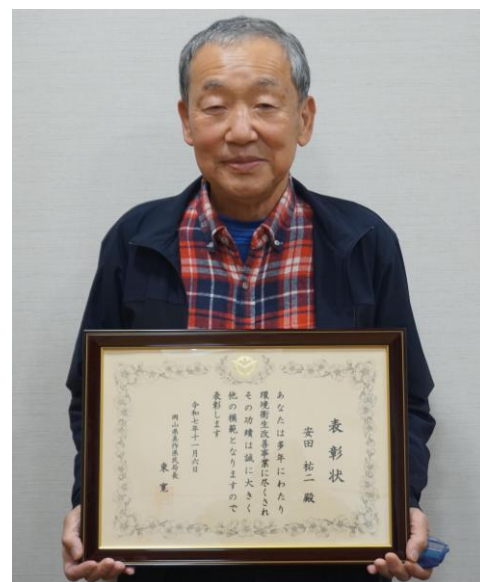 表彰状
安田 祐二 殿
あなたは多年にわたり
環境衛生改善事業に尽くされ
その功績は誠に大きく
他の模範となりますので
表彰します
令和七年十一月六日
岡山県美作県民局長
東 寛